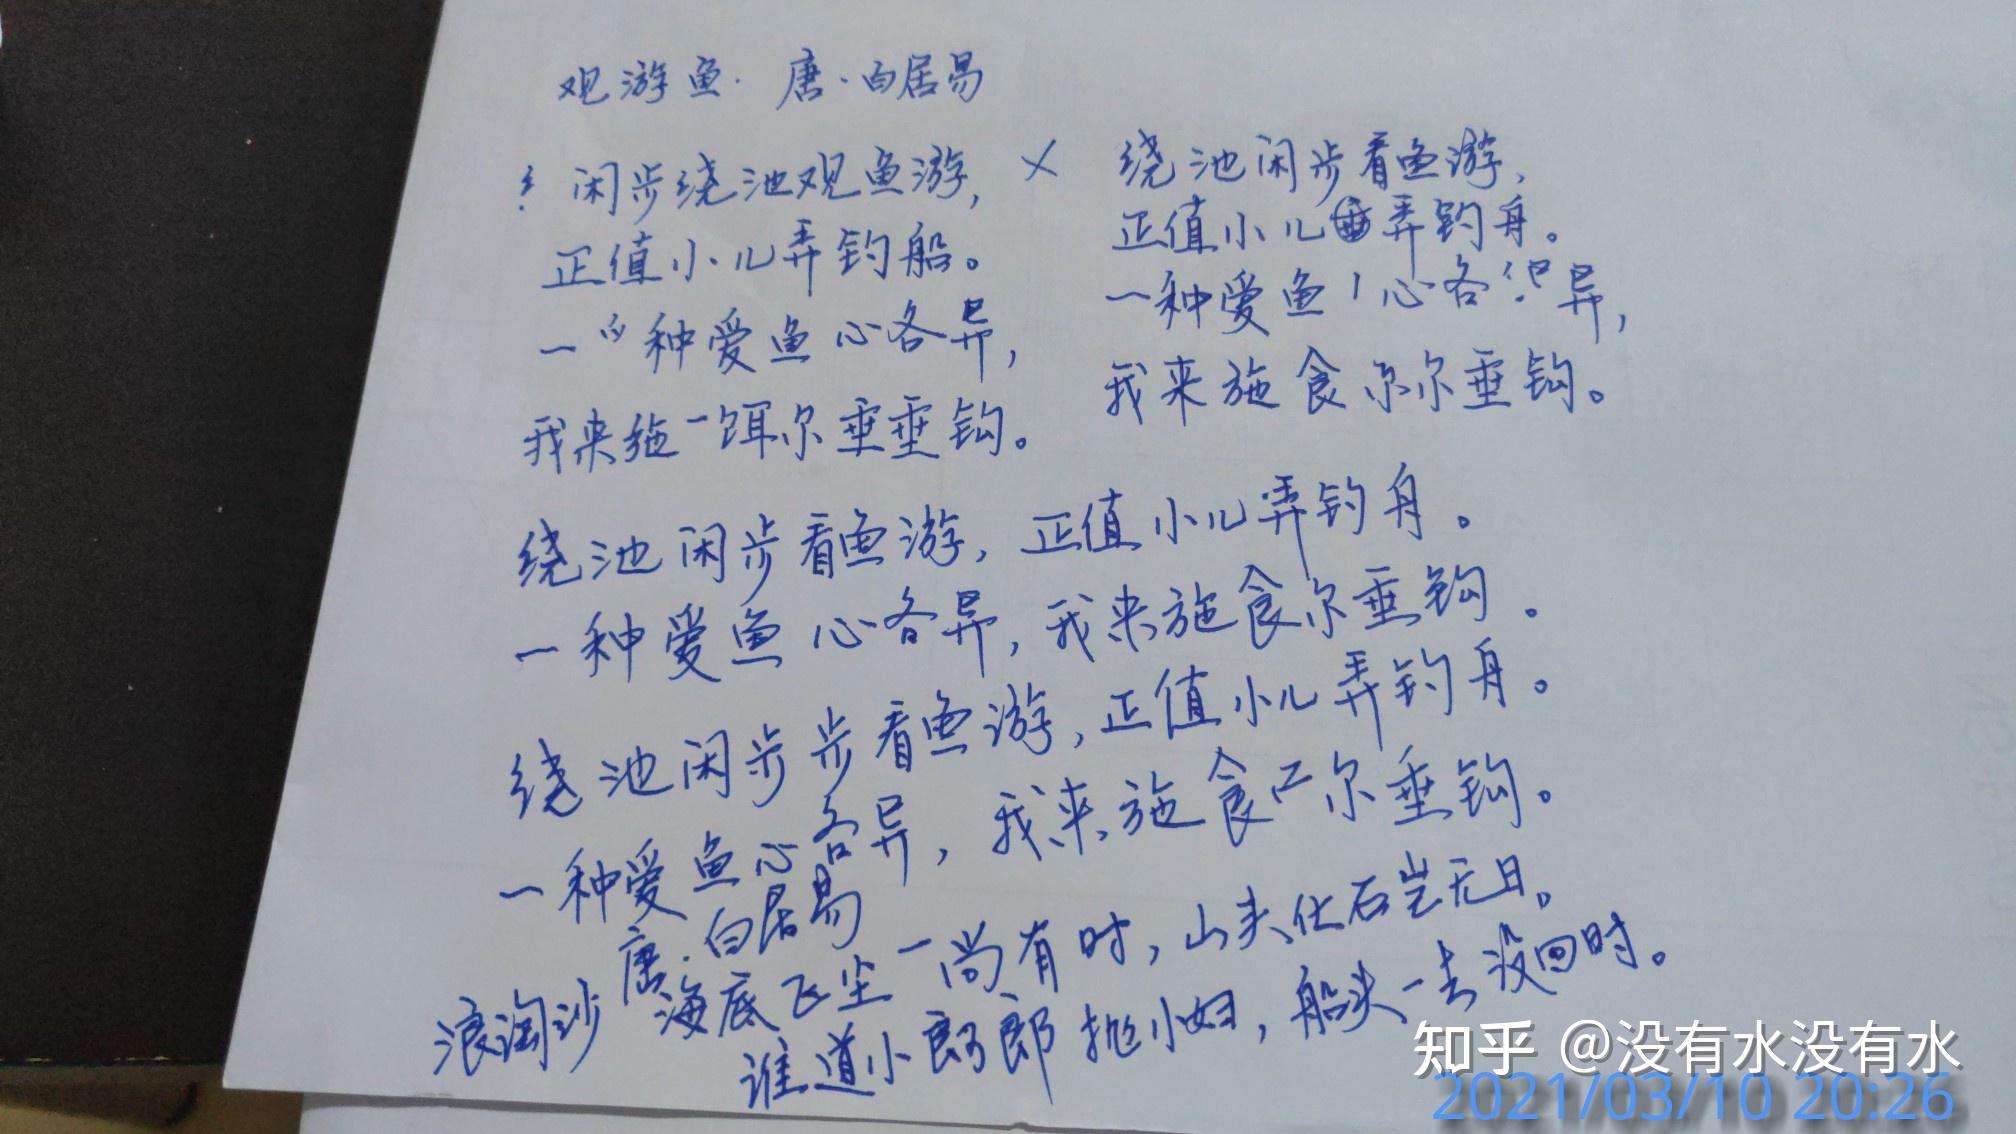 观游鱼·唐·白居易
闲步绕池观鱼游,
正值小儿弄钓船。
一种爱鱼心各异,
我来施饵尔垂垂钩。
×
绕池闲步看鱼游,
正值小儿弄钓舟。
一种爱鱼心各异,
我来施食尔尔垂钩。
绕池闲步看鱼游,正值小儿弄钓舟。
一种爱鱼心各异,我来施食尔垂钩。
绕池闲步步看鱼游,正值小儿弄钓舟。
一种爱鱼心各异,我来施食尔垂钩。
浪淘沙 唐·白居易
海底飞尘尚有时,山头化石岂无日。
谁道小郎郎抛小妇,船头一去没回时。
知乎 @没有水没有水
2021/03/10 20:26